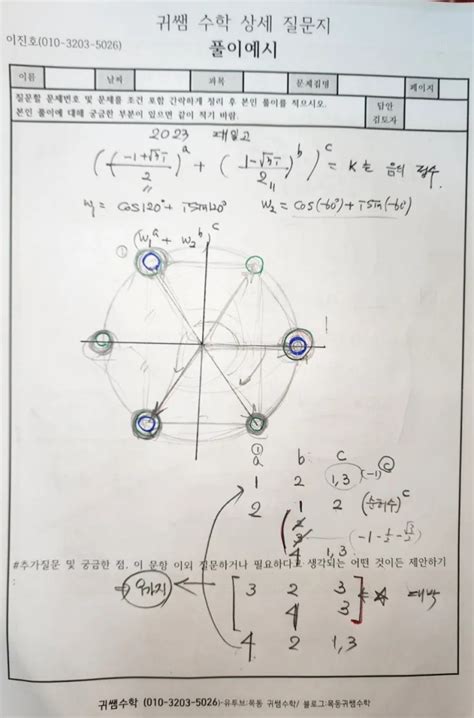 귀쌤 수학 상세 질문지
이진호(010-3203-5026)
풀이예시
이름 날짜 과목 문제집명 페이지
질문할 문제번호 및 문제를 조건 포함 간략하게 정리 후 본인 풀이를 적으시오.
본인 풀이에 대해 궁금한 부분이 있으면 같이 적기 바람.
담안
검토자
2023
((-1+√3i)/2)^a + ((1-√3i)/2)^b)^c = K는 음의 정수.
W₁ = cos120°+isin120° W₂ = cos(-60°)+isin(-60°)
① (W₁^a + W₂^b)^c
1
①
a b c
1 2 1,3 (-1)^c
2 1 2 (순허수)^c
2
3
4 1,3
#추가질문 및 궁금한 점, 이 문항 이외 질문하거나 필요하다고 생각되는 어떤 것이든 제안하기
:
9가지
3 2 3
4 3
4 2 1,3
귀쌤수학 (010-3203-5026)-유투브:목동 귀쌤수학/ 블로그:목동귀쌤수학